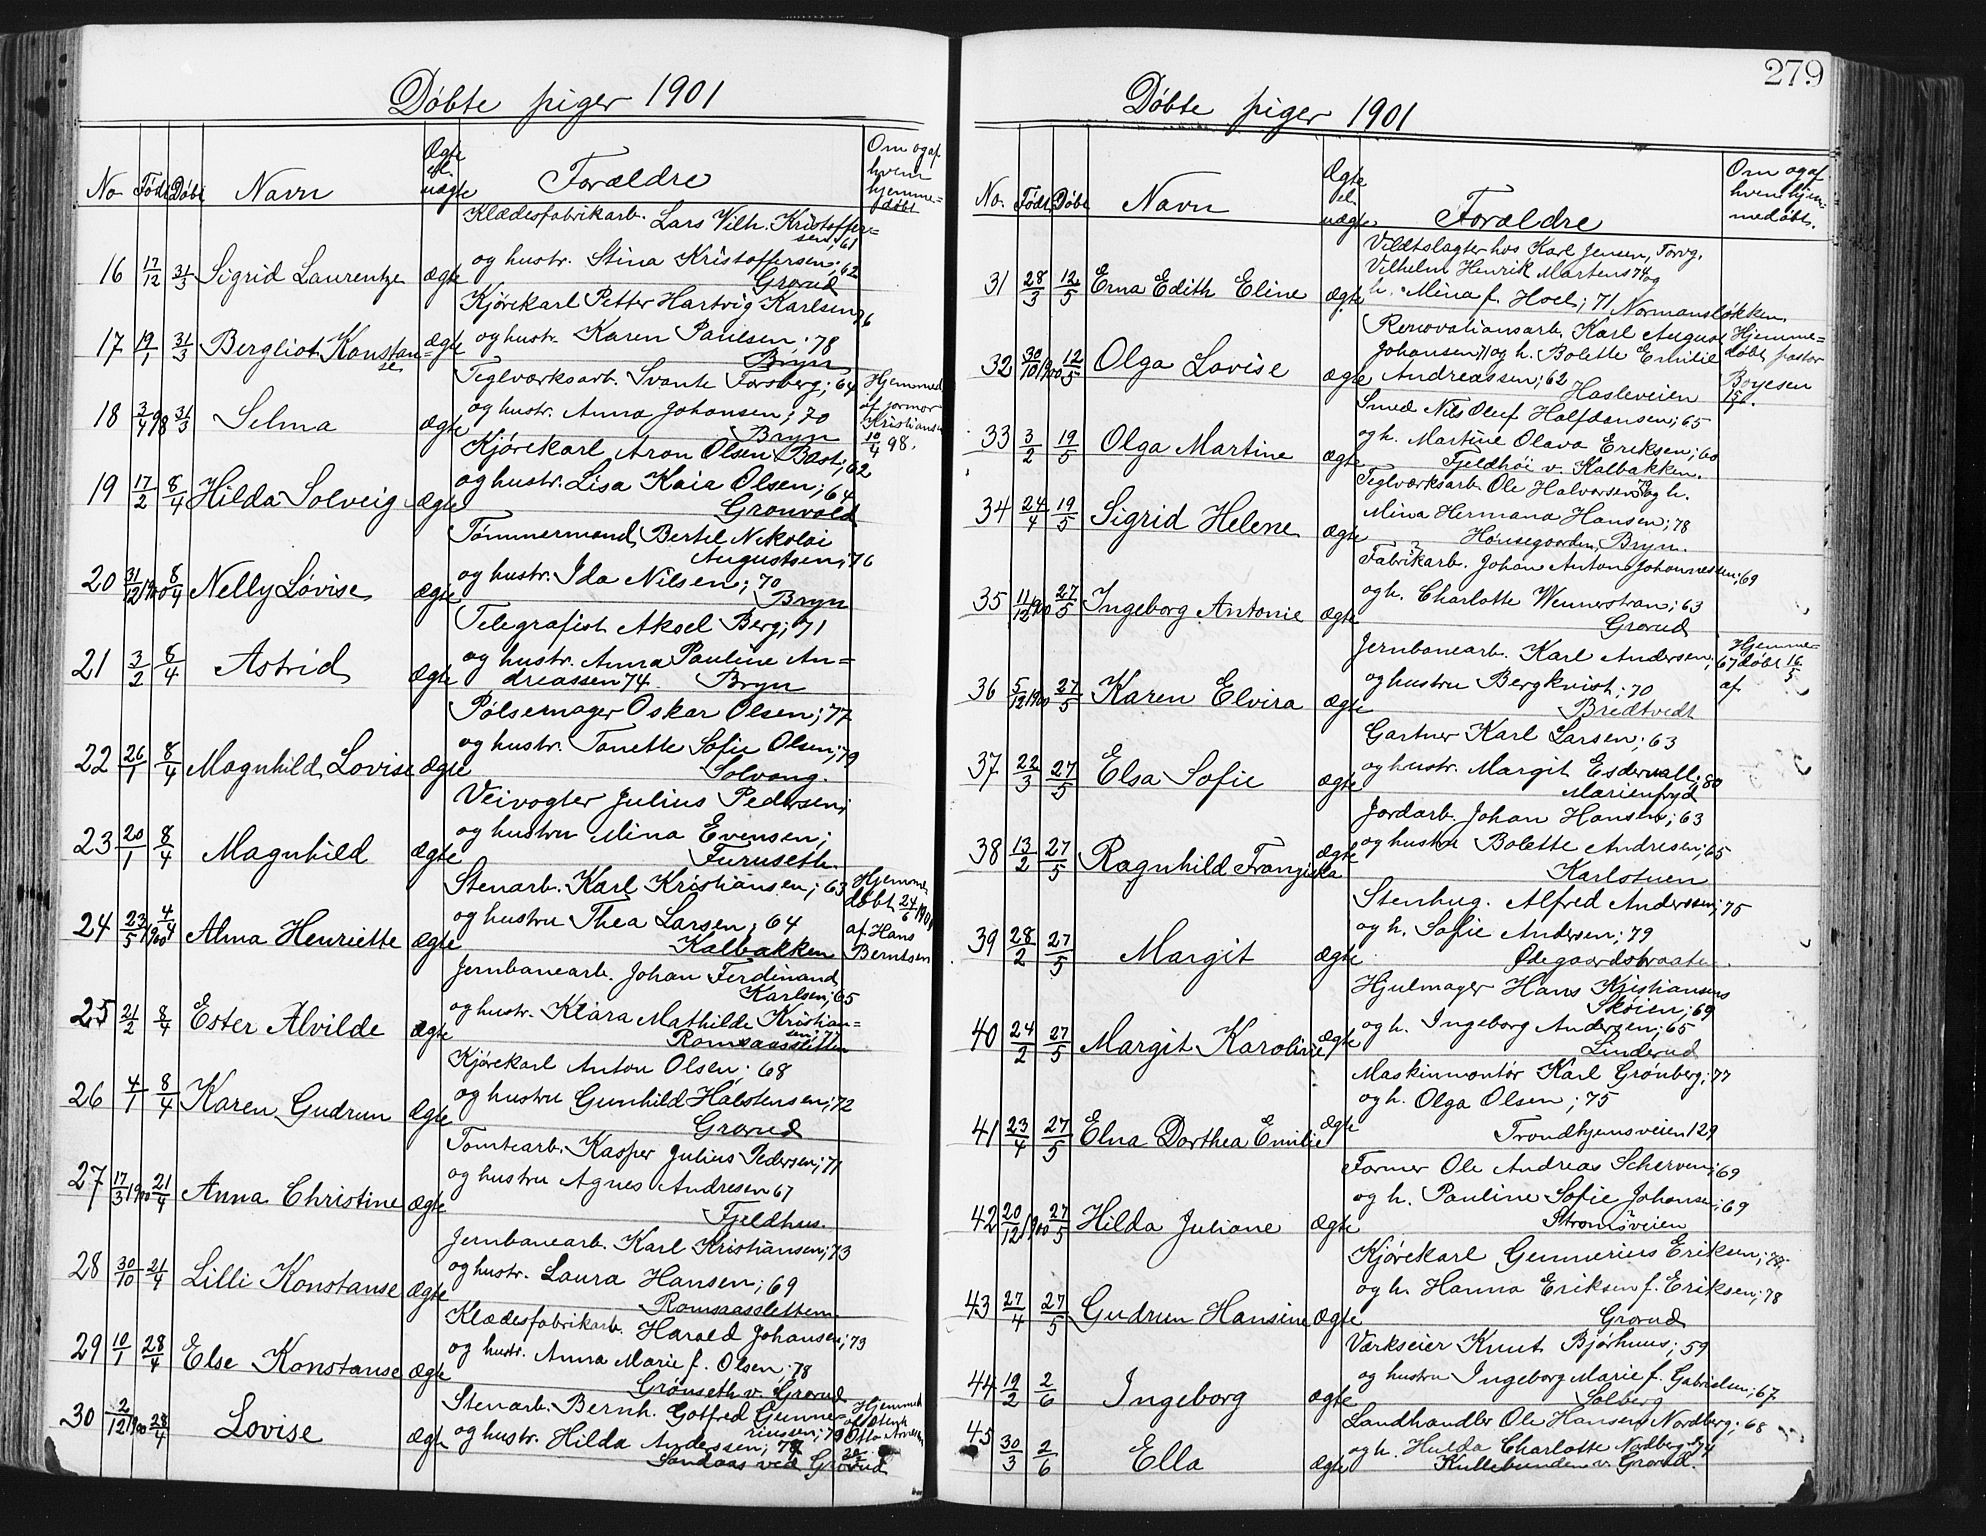 Døbte piger 1901
No Født Døbt Navn Ægte el. uægte Forældre Om og af hvem hjemme=døbt
16 17/12 31/3 Sigrid Laurentze ægte Klædesfabrikarb. Lars Vilh. Kristoffer=
sen; 61
og hustr. Stina Kristoffersen; 62
Grorud
17 19/1 31/3 Bergliot Konstan=se ægte Kjørekarl Petter Hartvig Karlsen 76
og hustr. Karen Paulsen; 78
Bryn
18 3/4 98 31/3 Selma ægte Teglværksarb. Svante Forsberg; 64
og hustr. Anna Johansen; 70
Bryn
Hjemmed. af jormor Kristiansen 10/4 98.
19 17/2 8/4 Hilda Solveig ægte Kjørekarl Aron Olsen Bast; 62
og hustr. Lisa Kaia Olsen; 64
Gronvold
20 31/12 1900 8/4 Nelly Lovise ægte Tømmermand Bertel Nikolai
Augustsen; 76
og hustr. Ida Nilsen; 70
Bryn
21 3/2 8/4 Astrid ægte Telegrafist Aksel Berg; 71
og hustr. Anna Pauline An=
dreassen 74. Bryn
22 26/1 8/4 Magnhild Lovise ægte Pølsemager Oskar Olsen; 77
og hustr. Tonette Sofie Olsen; 79
Solvang.
23 20/1 8/4 Magnhild ægte Veivogter Julius Pedersen;
og hustru Mina Evensen;
Furuseth.
24 23/5 1900 4/4 Alma Henriette ægte Stenarb. Karl Kristiansen; 63
og hustru Thea Larsen; 64
Kalbakken
Hjemme døbt 24/6 1900 af Hans Berntsen
25 21/2 8/4 Ester Alvilde ægte Jernbanearb. Johan Ferdinand
Karlsen; 65
og hustr. Klara Mathilde Kristian=
sen; 71
Romsaassletten
26 4/1 8/4 Karen Gudrun ægte Kjørekarl Anton Olsen; 68
og hustru Gunhild Halstensen; 72
Grorud
27 17/3 1900 21/4 Anna Christine ægte Tomtearb. Kasper Julius Pedersen; 71
og hustru Agnes Andresen 67
Fjeldhus.
28 30/10 21/4 Lilli Konstanse ægte Jernbanearb. Karl Kristiansen; 73
og hustr. Laura Hansen; 69
Romsaassletten
29 10/1 28/4 Else Konstanse ægte Klædesfabrikarb. Harald Johansen; 73
og hustr. Anna Marie f. Olsen; 78
Grønseth v. Grorud
30 2/12 1900 28/4 Lovise ægte Stenarb. Bernh. Gotfred Gunne
riussen; 79
og hustr. Hilda Anderssen; 78
Sandaas ved Grorud
Hjemmed. af Otto
279
Døbte piger 1901
No. Født Døbt Navn Ægte el. uægte Forældre Om og af hvem hjem=medøbt.
31 28/3 12/5 Erna Edith Eline ægte Vildtslagter hos Karl Jensen, Torvg.
Vilhelm Henrik Martens 74 og
h. Mina f. Hoel; 71 Normansløkken.
32 30/10 1900 12/5 Olga Lovise ægte Renovationsarb. Karl August
Johansen 71 og h. Bolette Emilie
Andreassen; 62
Hasleveien
Hjemme=døbt pastor Boyesen
33 3/2 19/5 Olga Martine ægte Smed Nils Oluf Halfdansen; 65
og h. Martine Olava Eriksen; 60
Fjeldhøi v. Kalbakken.
34 24/4 19/5 Sigrid Helene ægte Teglværksarb. Ole Halvorsen og h.
Mina Hermana Hansen; 78
Hønsegaarden, Bryn.
35 11/12 1900 27/5 Ingeborg Antonie ægte Fabrikarb. Johan Anton Johannessen; 69
og h. Charlotte Wennerstrøm; 63
Grorud
36 5/12 1900 27/5 Karen Elvira ægte Jernbanearb. Karl Andersen; 67
og hustru Bergkvist; 70
Bredtvedt
Hjemme-døbt 16/5 af
37 22/3 27/5 Elsa Sofie ægte Gartner Karl Larsen; 63
og hustr. Margit Esdervall; 80
Marienfryd
38 13/2 27/5 Ragnhild Franziska ægte Jordarb. Johan Hansen; 63
og hustru Bolette Andresen; 65
Karlstuen
39 28/2 27/5 Margit ægte Stenhug. Alfred Anderssen; 75
og h. Sofie Andersen; 79
Ødegaardsbraaten.
40 24/2 27/5 Margit Karoline ægte Hjulmager Hans Kristiansens
Skøien; 69
og h. Ingeborg Andersen; 65
Linderud
41 23/4 27/5 Elna Dorthea Emilie ægte Maskinmontør Karl Grønberg; 77
og h. Olga Olsen; 75
Trondhjemsveien 129
42 20/12 1900 27/5 Hilda Juliane ægte Former Ole Andreas Scherven; 69
og h. Pauline Sofie Johansen; 69
Strømsveien
43 27/4 27/5 Gudrun Hansine ægte Kjørekarl Gunnerius Eriksen; 78.
og h. Hanna Eriksen f. Eriksen; 78
Grorud
44 19/2 2/6 Ingeborg ægte Værkseier Knut Bjørhuus; 59
og hustru Ingeborg Marie f. Gabrielsen; 67
Solberg
45 30/3 2/6 Ella ægte Landhandler Ole Hansen Nordberg; 68
og h. Hulda Charlotte Nordberg 74
Kullebunden v. Grorud.